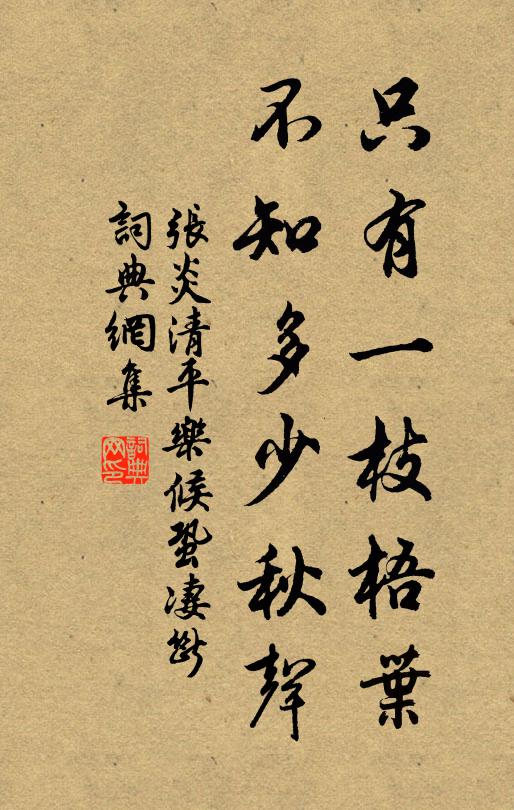 只有一枝梧葉
不知多少秋聲
張炎清平樂候蛩淒斷
詞典網集
詞典
网印